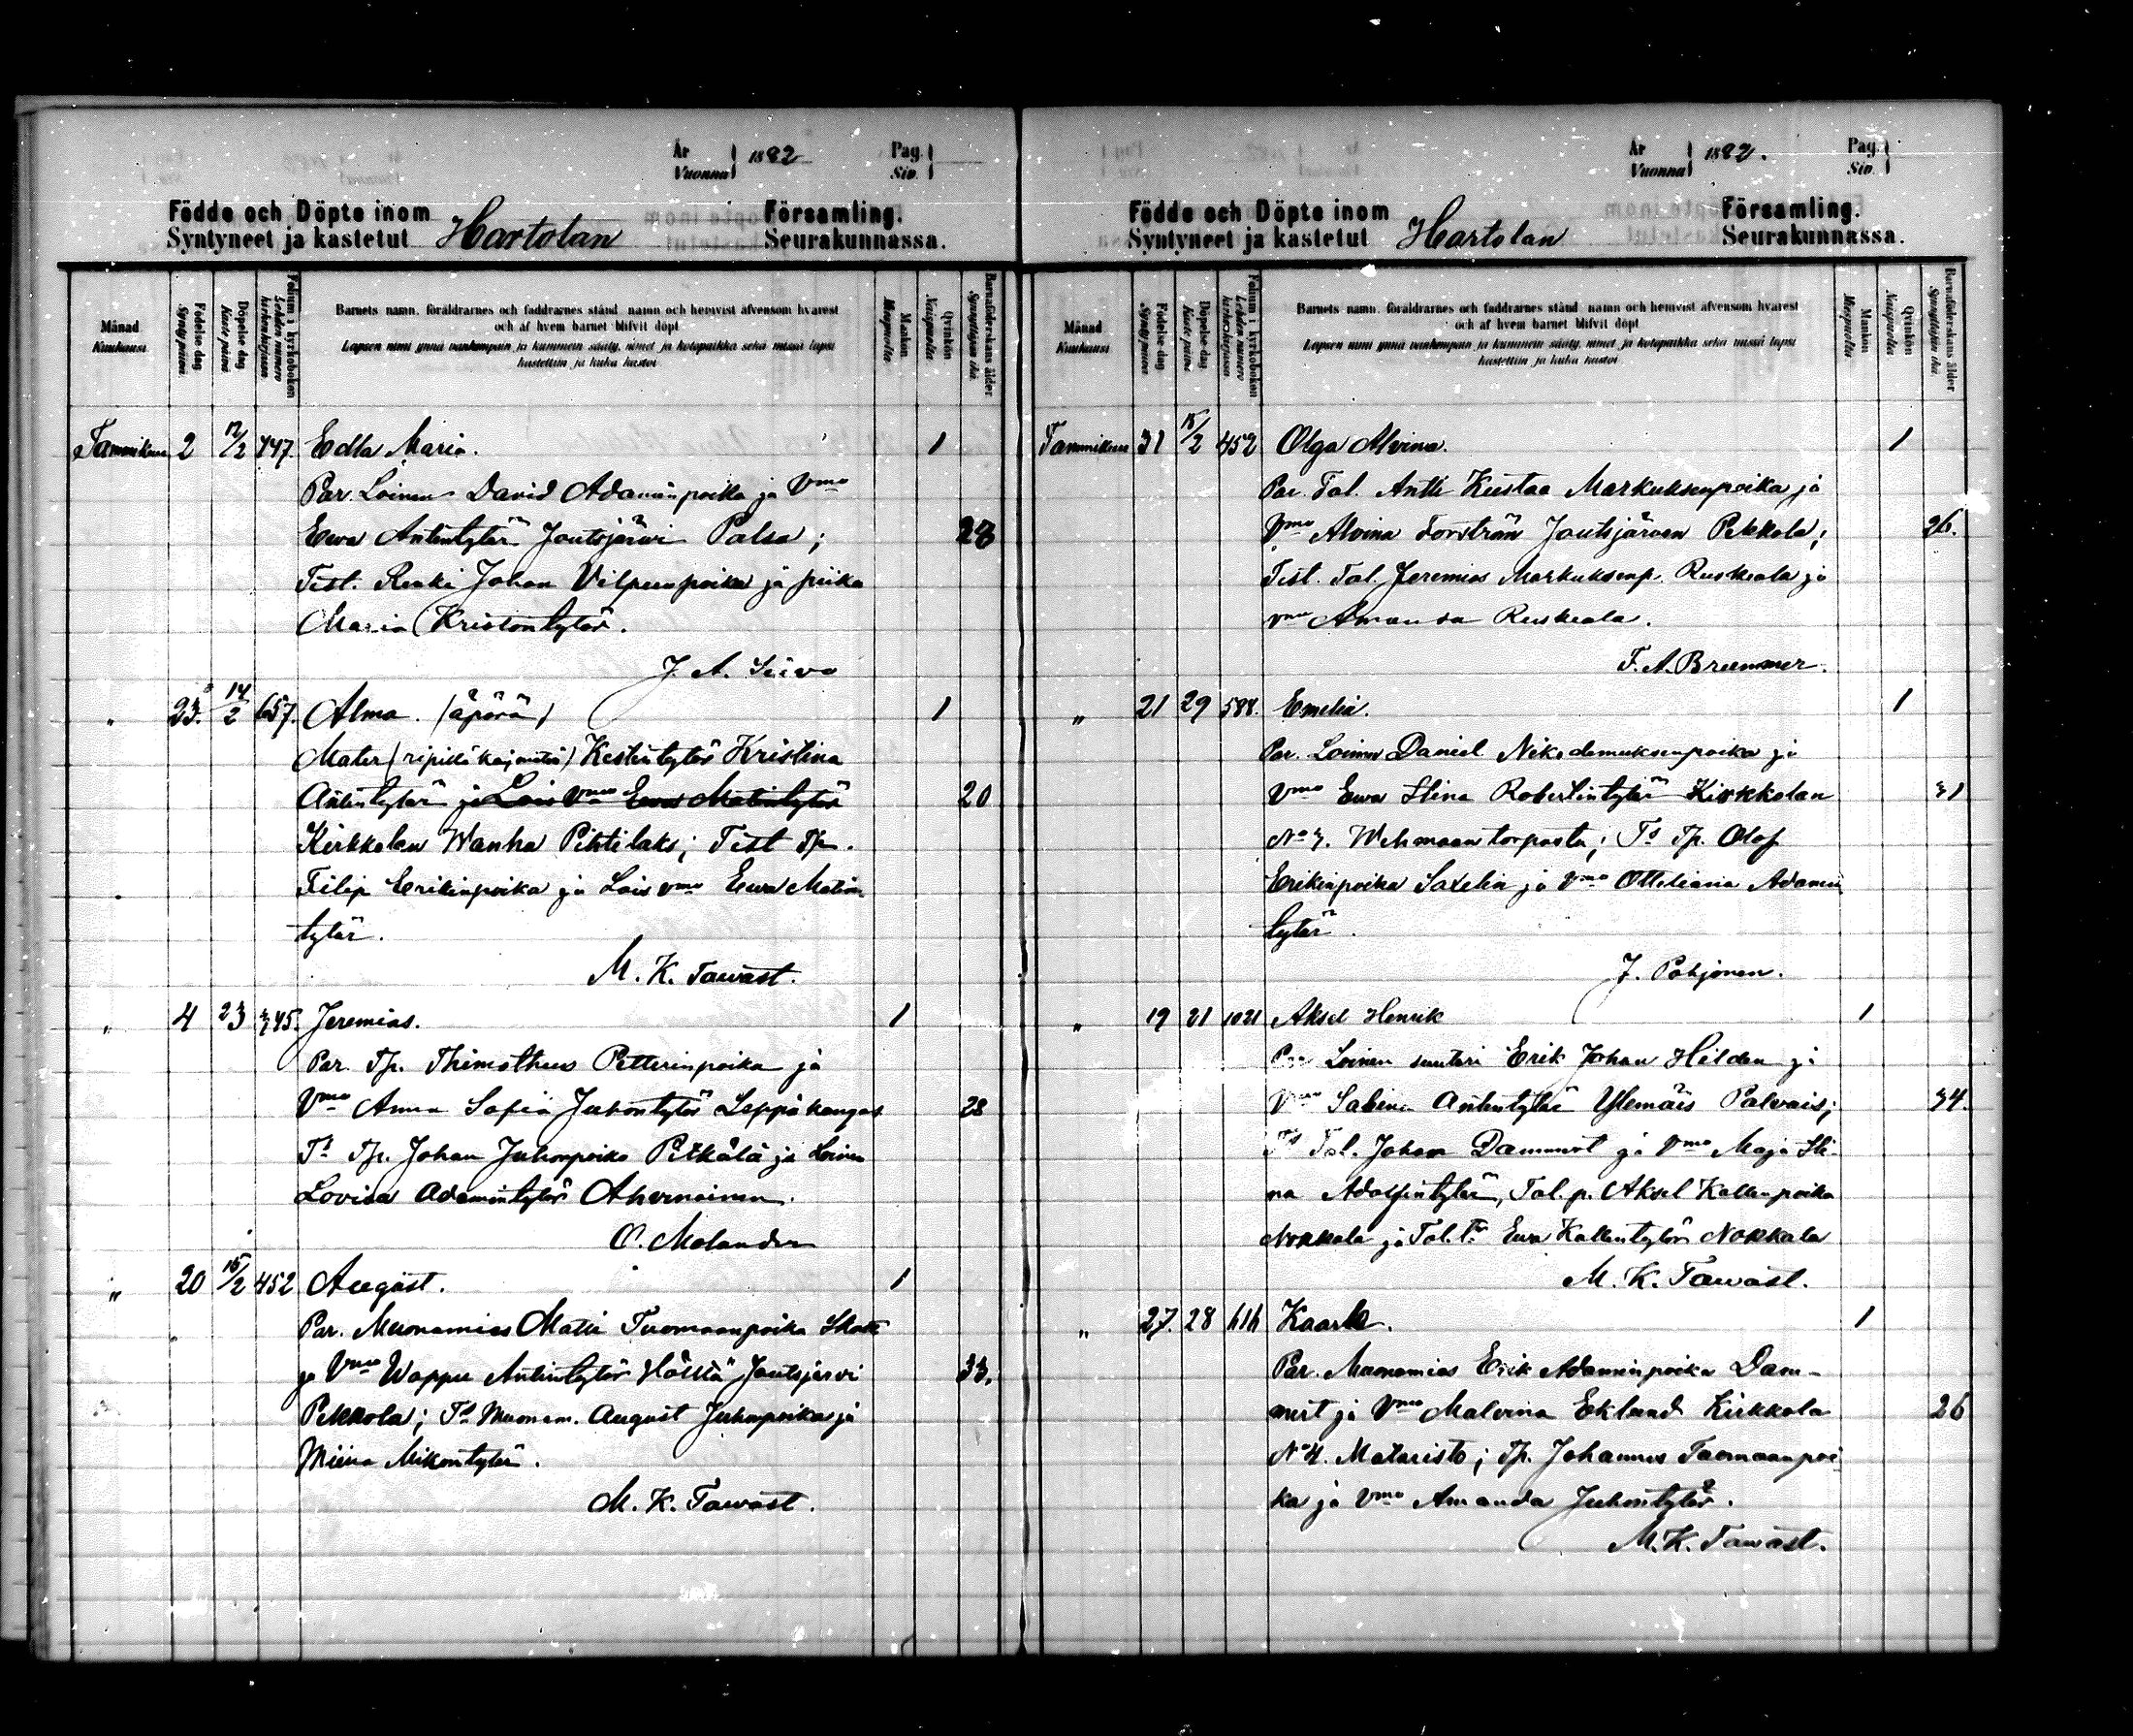 År
Vuonna 1882
Pag.
Siv.
Födde och Döpte inom
Syntyneet ja kastetut Hartolan
Församling.
Seurakunnassa.
Månad
Kuukausi
Födelse dag
Synty päivä
Döpelse dag
Kaste päivä
Folium i kyrkoboken
Lehden numero kirkonkirjassa
Barnets namn, föräldrarnes och faddrarnes stånd, namn och hemvist äfvensom hvarest
och af hvem barnet blifvit döpt
Lapsen nimi ynnä vanhempain ja kummein sääty, nimet ja kotopaikka sekä missä lapsi
kastettiin ja kuka kastoi
Mankön
Miespuolta
Qvinkön
Naispuolta
Barnaföderskans ålder
Synnyttäjän ikä
Tammikuu 2 12/2 447 Edla Maria. 1
Par. Loinen David Adaminpoika ja Vmo
Ewa Antintytär Joutsjärvi Palsa; 28
Test. Renki Johan Vilpunpoika ja piika
Maria Kristontytär.
J. A. Siivo
" 23. 14/2 657. Alma. (äpärä) 1
Mater (ripillä käymätön) Kestintytär Kristina
Antintytär ja Lois Vmo Ewa Matintytär 20
Kirkkolan Wanha Pihtilaks; Test Tp.
Filip Erikinpoika ja Lois vmo Ewa Matin
tytär.
M. K. Tawast.
" 4 23 345. Jeremias. 1
Par. Tp. Thimotheus Petterinpoika ja
Vmo Anna Sofia Juhontytär Leppäkangas 28
Ts Tp. Johan Juhonpoika Pitkälä ja Loinen
Lovisa Adamintytär Ahvenainen.
O. Molander
" 20 15/2 452 August. 1
Par. Muonamies Matti Tuomaanpoika
ja Vmo Wappu Antintytär Hölttä Joutsjärvi 33.
Pekkola; Ts Muonam. August Juhonpoika ja
Miina Mikontytär.
M. K. Tawast.
År
Vuonna 1882.
Pag.
Siv.
Födde och Döpte inom
Syntyneet ja kastetut Hartolan
Församling.
Seurakunnassa.
Månad
Kuukausi
Födelse dag
Synty päivä
Döpelse dag
Kaste päivä
Folium i kyrkoboken
Lehden numero kirkonkirjassa
Barnets namn, föräldrarnes och faddrarnes stånd, namn och hemvist äfvensom hvarest
och af hvem barnet blifvit döpt
Lapsen nimi ynnä vanhempain ja kummein sääty, nimet ja kotopaikka sekä missä lapsi
kastettiin ja kuka kastoi
Mankön
Miespuolta
Qvinkön
Naispuolta
Barnaföderskans ålder
Synnyttäjän ikä
Tammikuu 31 15/2 452 Olga Alvina. 1
Par. Tal. Antti Kustaa Markuksenpoika ja
Vmo Alvina Forsträn Joutsjärven Pekkola; 26.
Test. Tal. Jeremias Markuksenp. Ruskeala ja
vmo Amanda Ruskeala.
F. A. Brummer.
" 21 29 588. Emelia. 1
Par. Loinen Daniel Nikodemuksenpoika ja
Vmo Ewa Stina Robertintytär Kirkkolan 31
No 3. Wehmaan torpasta; Ts Tp. Olof
Erikinpoika Saxelin ja Vmo Otteliana Adamin
tytär.
J. Pohjonen.
" 19 21 1021 Aksel Henrik 1
Par Loinen suutari Erik Johan Hilden ja
Vmo Sabina Antintytär Ylemäis Palvais; 34.
Ts Tal. Johan Dammert ja Vmo Maja Sti-
na Adolfintytär, Tal. p. Aksel Kallenpoika
Nokkala ja Tal. tr Ewa Kallentytär Nokkala
M. K. Tawast.
" 27. 28 616 Kaarle. 1
Par. Muonamies Erik Adaminpoika Dam-
mert ja Vmo Malvina Eklund Kirkkola 26
No 4. Mataristo; Tp. Johannes Tuomaanpoi
ka ja Vmo Amanda Juhontytär.
M. K. Tawast.